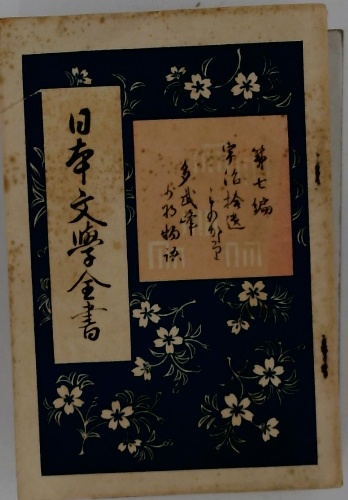 日本文學全書
第七編
宇治拾遺
多武峰
少将物語